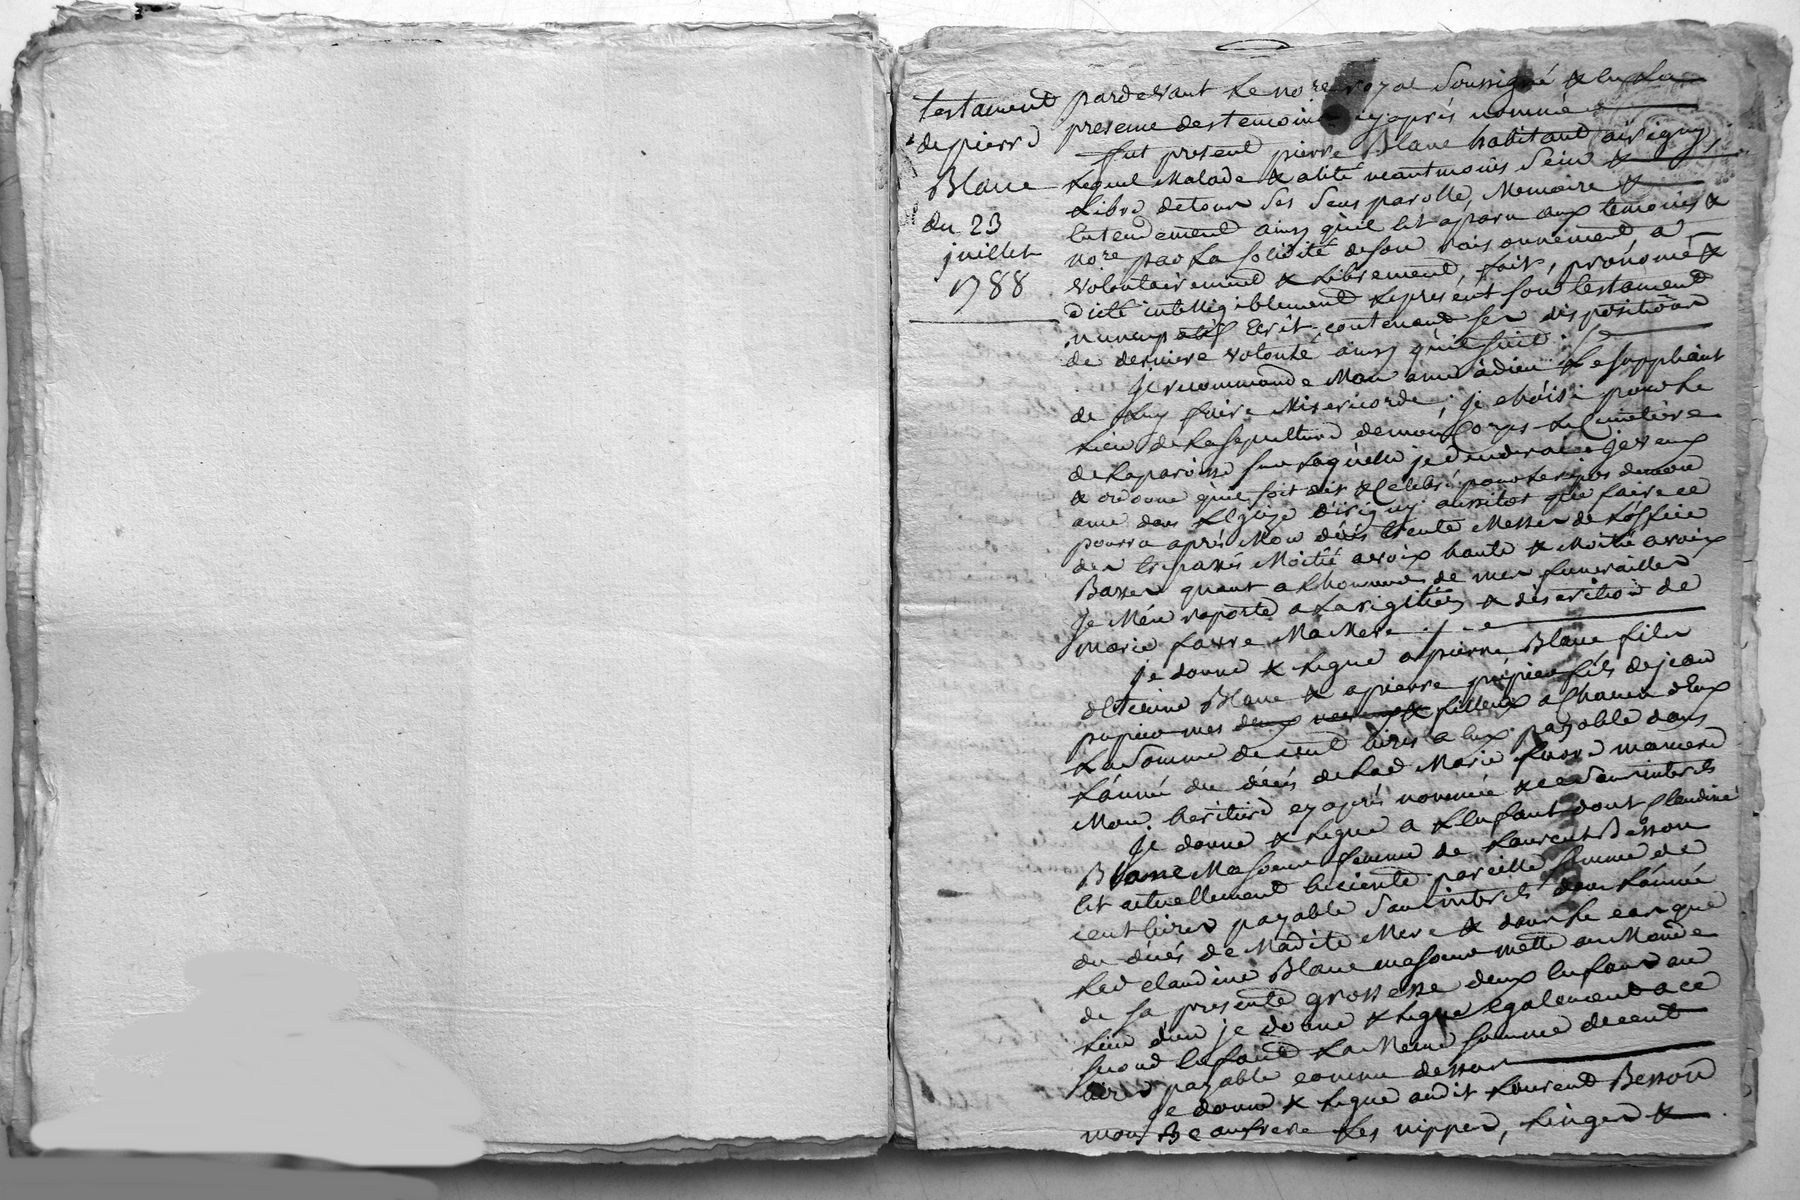 testament
de pierre
Blanc
du 23
juillet
1788
pardevant le nore royal soussigné & en la
presence des temoins cyaprés nommés
fut present pierre Blanc habitant a irigny,
lequel malade & alité neantmoins sein &
libre de tous ses sens parolle, memoire &
entendement ainsy quil est aparu aux temoins &
nore par la solidité de son raisonnement a
volontairement & librement, fait, prononcé &
dicté intelligiblement le present son testament
nuncupatif ecrit contenant ses dispositions
de derniere volonté ainsy quil suit :
Je recommande mon ame a dieu & le suppliant
de luy faire misericorde ; je choisi pour le
lieu de la sepulture de mon corps le cimetiere
de la paroisse sur laquelle je decederai : je veux
& ordonne quil soit dit & celebré pour le repos de mon
ame dans l'Eglize d'irigny aussitot que faire ce
pourra aprés mon décés trente messes de l'office
des trepassés moitié a voix haute & moitié a voix
basse, quant a l'honneur de mes funerailles
je m'en raporte a la & discretion de
marie favre ma mere ./.
je donne & legue a pierre Blanc fils
d'Etienne Blanc & a pierre fils de jean
mes deux & filleux a chacun d'eux
la somme de cent livres a eux payable dans
l'année du décés de lad marie favre ma mere
mon heritiere cyaprés nommée & ce sans interets
Je donne & legue a l'enfant dont claudine
Blanc ma soeur femme de Laurent Besson
est actuellement enceinte pareille somme de
cent livres payable sans interets dans l'année
du décés de madite mere & dans le cas que
lad claudine Blanc ma soeur mette au monde
de sa presente grossesse deux enfans au
lieu d'un je donne & legue egalement a ce
second enfant la meme somme de cent
livres payable comme dessus
Je donne & legue audit Laurent Besson
mon Beaufrere les nippes, linges &